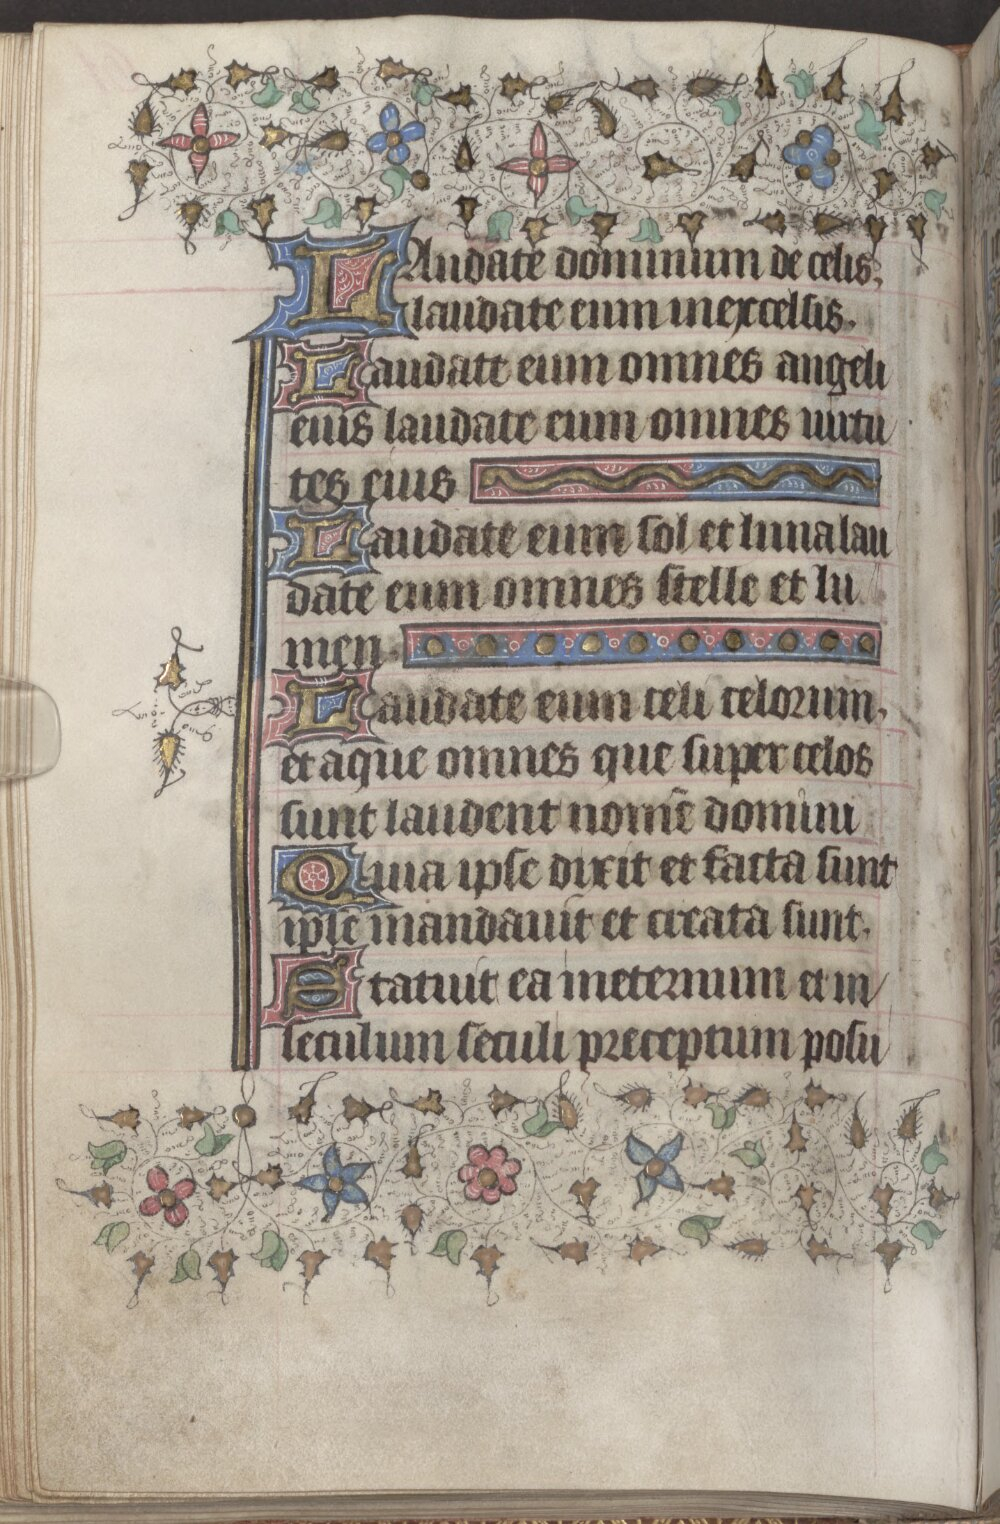 Laudate dominum de celis,
laudate eum in excelsis.
Laudate eum omnes angeli
eius laudate eum omnes uirtu
tes eius
Laudate eum sol et luna lau
date eum omnes stelle et lu
men
Laudate eum celi celorum,
et aque omnes que super celos
sunt laudent nomē domini
Quia ipse dixit et facta sunt
ipse mandauit et creata sunt.
Statuit ea in eternum et in
seculum seculi preceptum posu